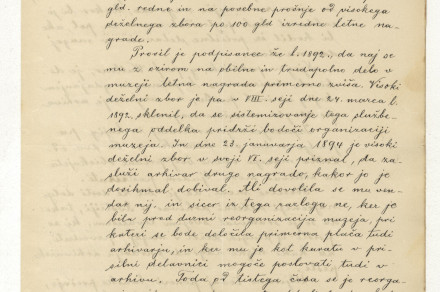 gld. redne in na posebne prošnje od visokega
deželnega zbora po 100 gld izredno letne na-
grade.
Prosil je podpisanec že l. 1892., da naj se
mu z ozirom na obilno in trudapolno delo v
muzeji letna nagrada primerno zviša. Visoki
deželni zbor je pa v VIII. seji dne 24. marca l.
1892. sklenil, da se sistemizovanje tega službe-
nega oddelka pridrži bodoči organizaciji
muzeja. In dne 23. januvarja 1894 je visoki
deželni zbor v svoji VI. seji priznal, da za-
služi arhivar drugo nagrado, kakor jo je
dosihmal dobival. Ali dovolila se mu ven-
dar nij. in sicer iz tega razloga ne, ker je
bila pred durmi reorganizacija muzeja, pri
kateri se bode določila primerna plača tudi
arhivarju, in ker mu je kot kuratu v pri-
silni delavnici mogoče poslovati tudi v
arhivu. Toda od tistega časa se je reorga-